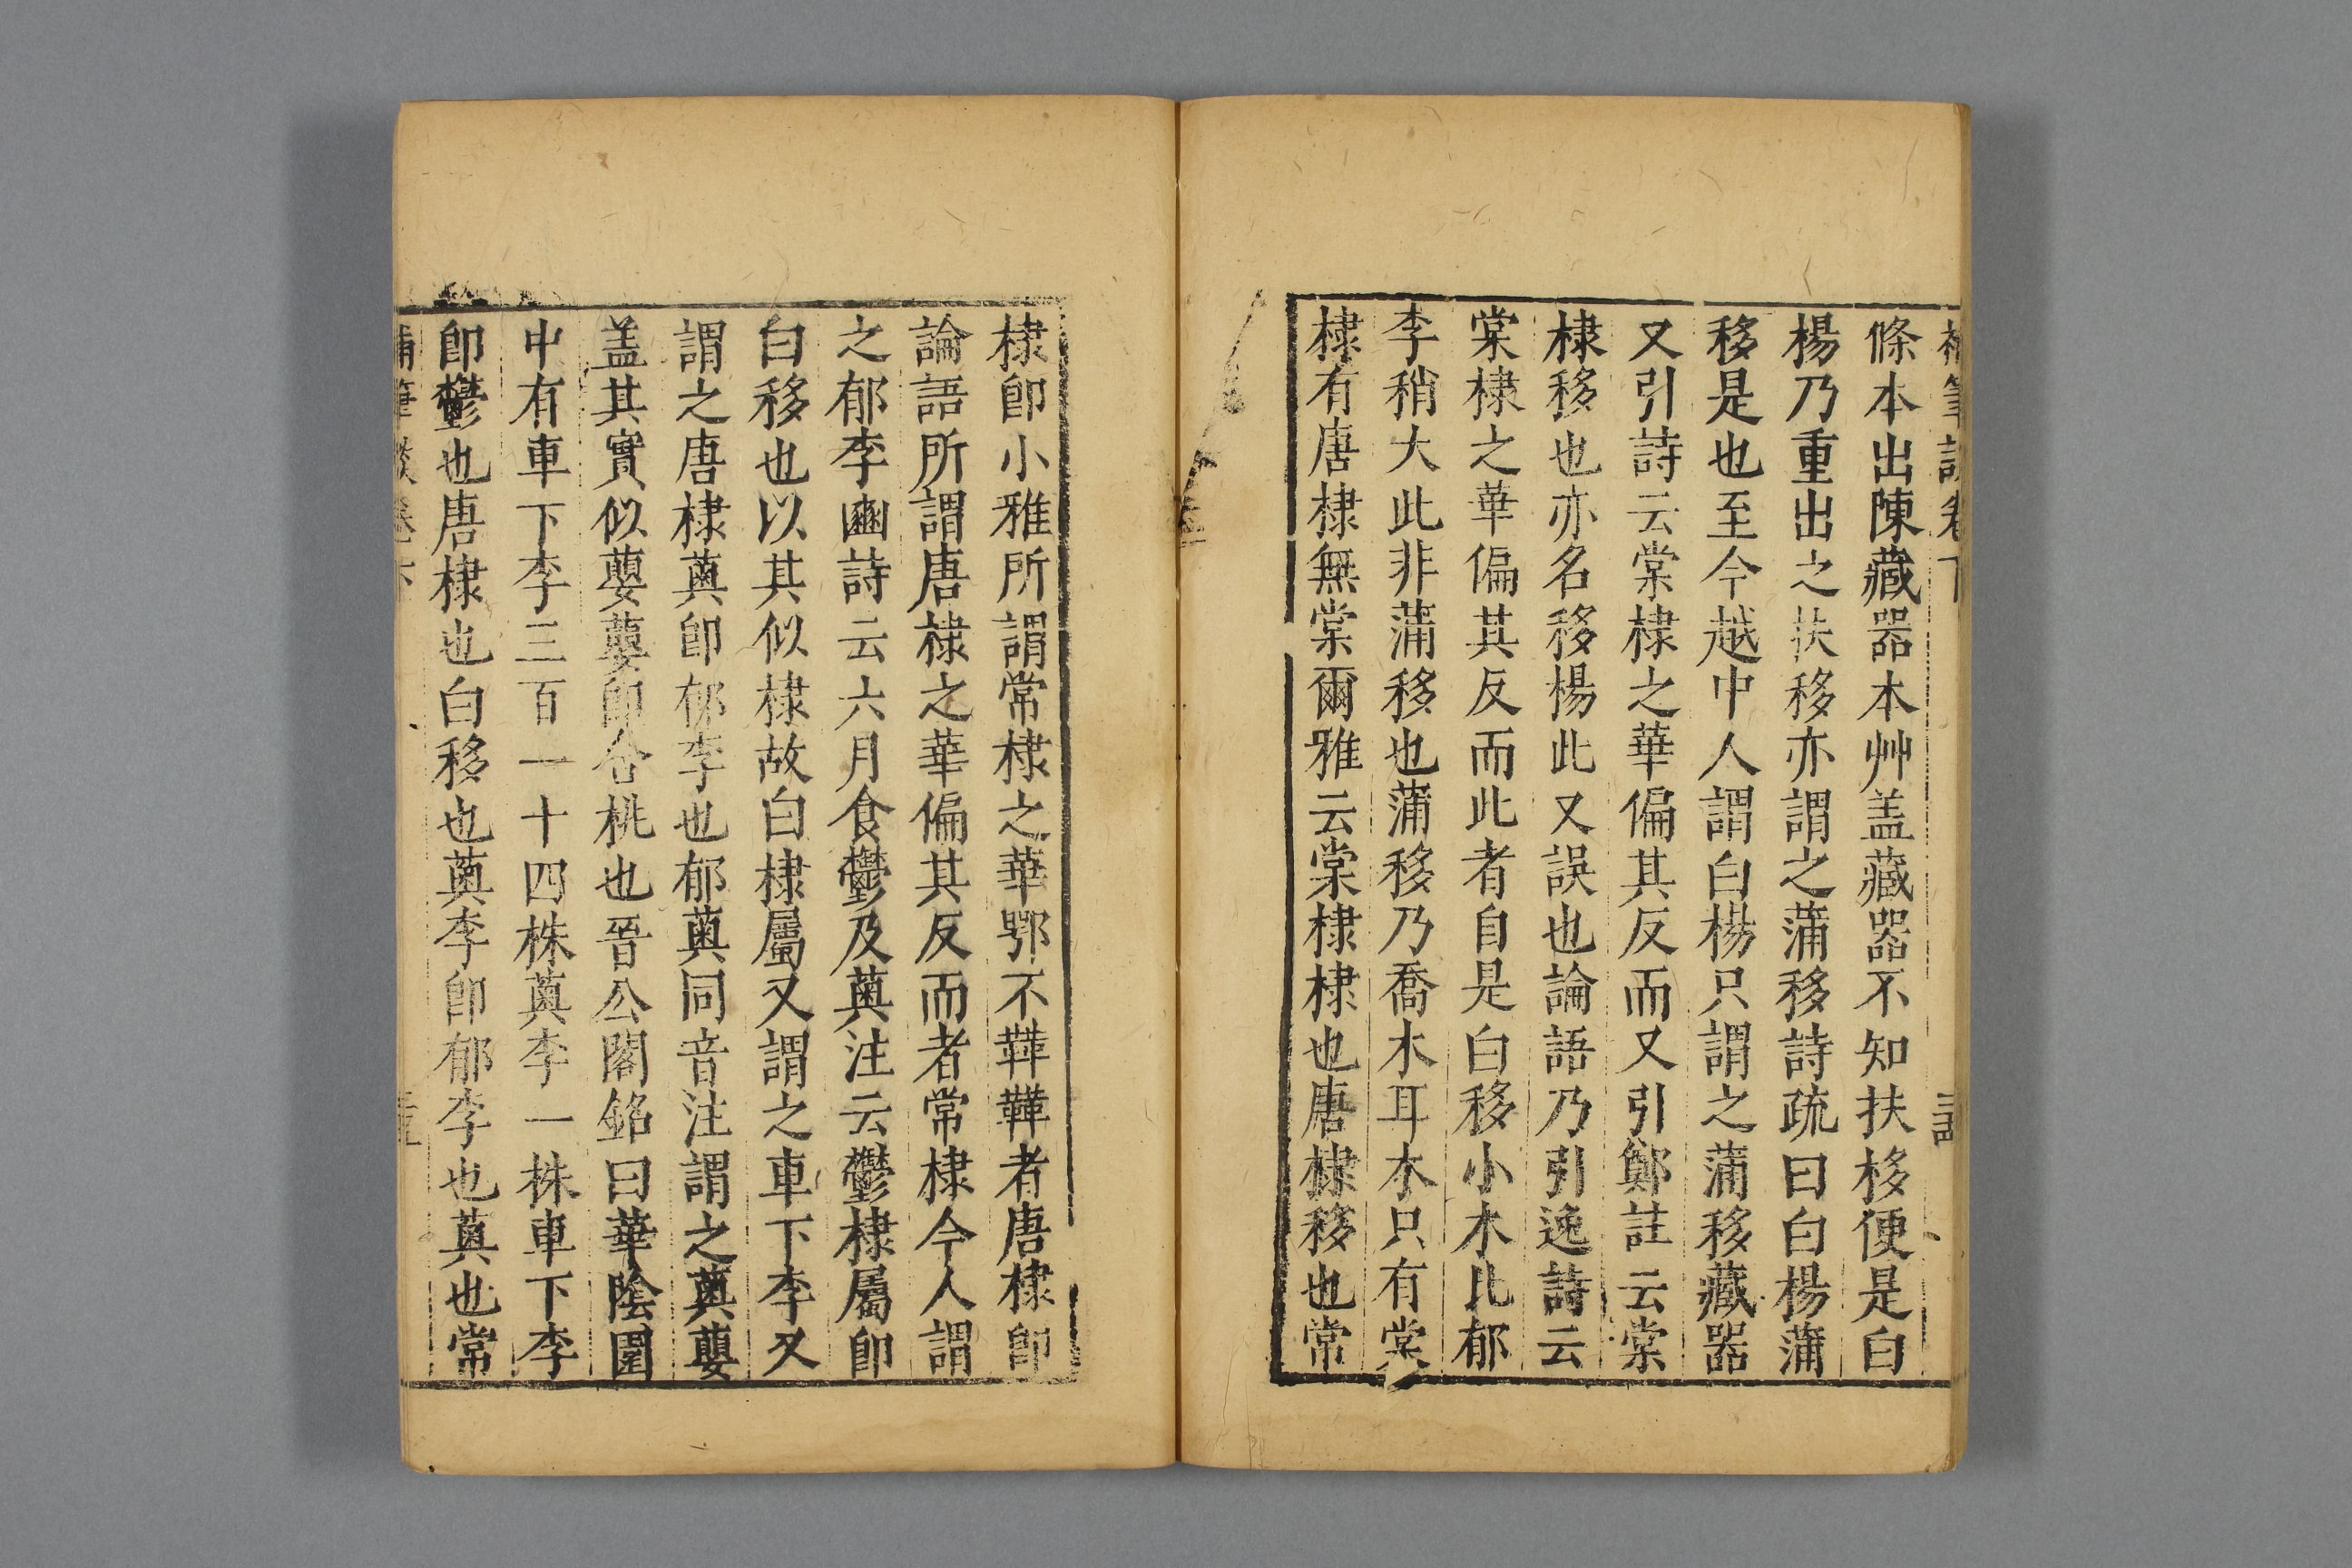 補筆談卷下
條本出陳藏器本艸盖藏器不知扶栘便是白
楊乃重出之扶栘亦謂之蒲栘詩疏曰白楊蒲
栘是也至今越中人謂白楊只謂之蒲栘藏器
又引詩云棠棣之華偏其反而又引鄭註云棠
棣栘也亦名栘楊此又誤也論語乃引逸詩云
棠棣之華偏其反而此者自是白栘小木比郁
李稍大此非蒲栘也蒲栘乃喬木耳木只有棠
棣有唐棣無棠爾雅云棠棣棣也唐棣栘也常
棣卽小雅所謂常棣之華鄂不韡韡者唐棣卽
論語所謂唐棣之華偏其反而者常棣今人謂
之郁李豳詩云六月食鬱及薁注云鬱棣屬卽
白栘也以其似棣故曰棣屬又謂之車下李又
謂之唐棣薁卽郁李也郁薁同音注謂之薁蘡
盖其實似蘡薁卽含桃也晉公閣銘曰華陰園
中有車下李三百一十四株薁李一株車下李
卽鬱也唐棣也白栘也薁李卽郁李也薁也常
補筆談卷下